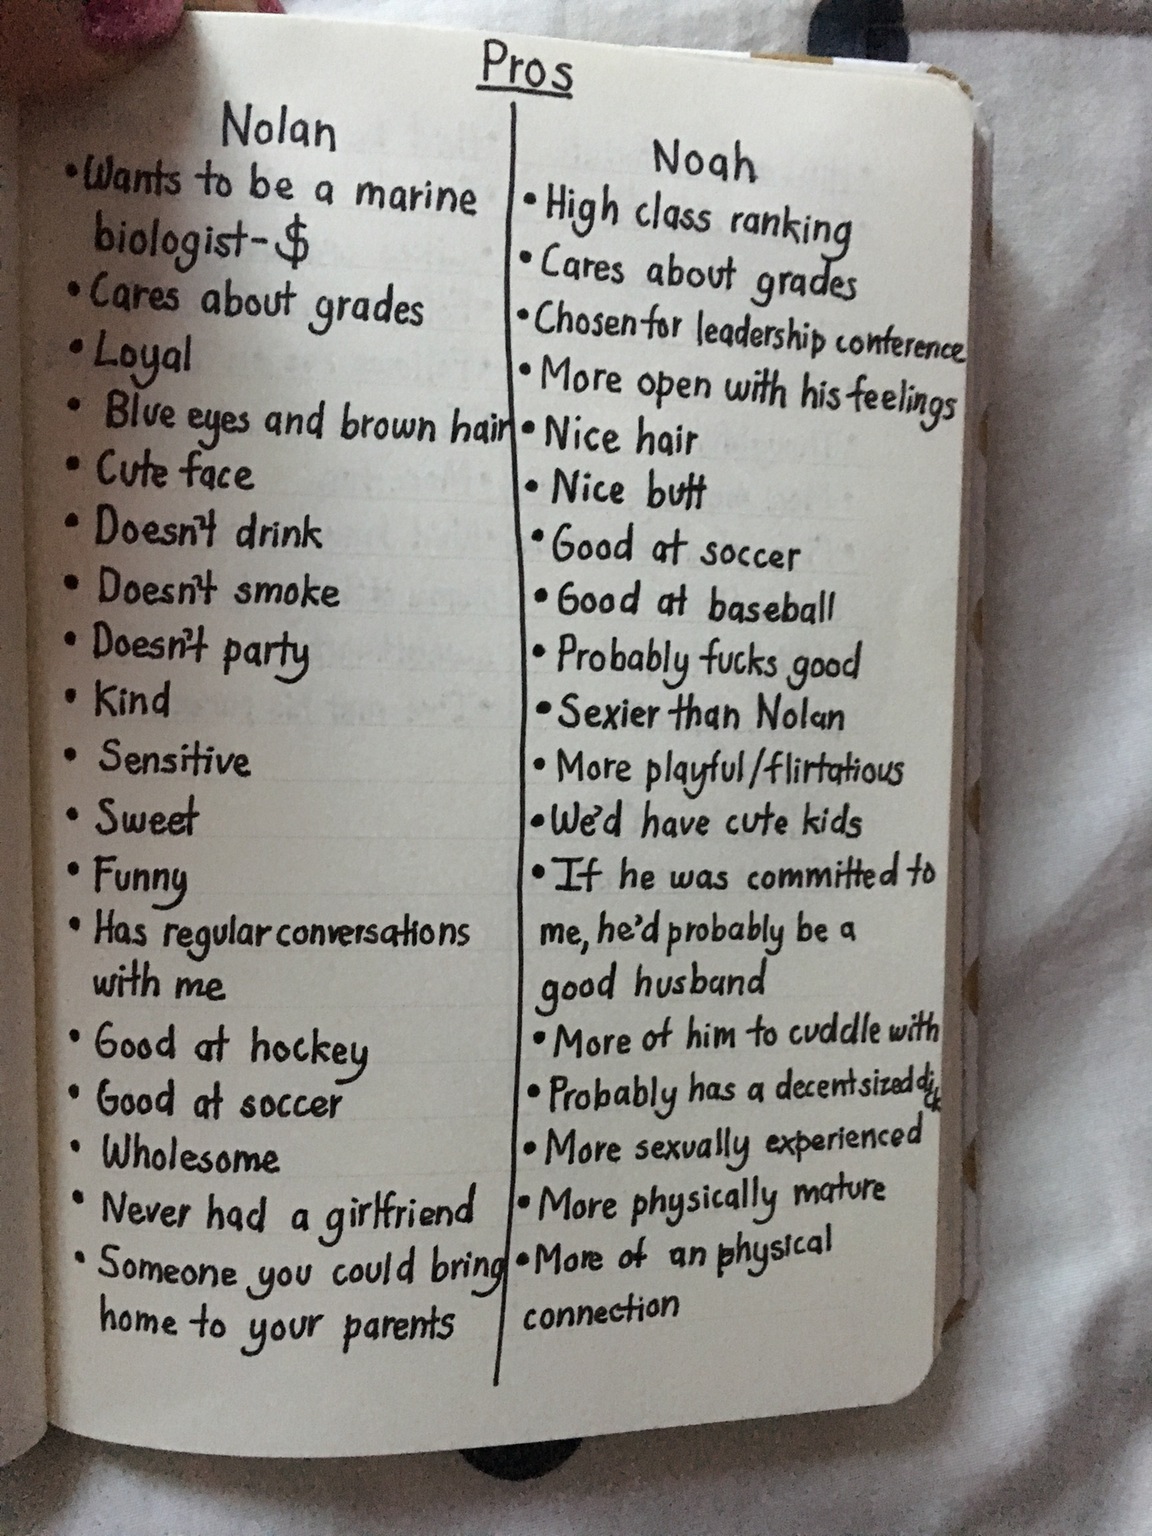 Pros
Nolan
• Wants to be a marine
biologist-$
• Cares about grades
• Loyal
• Blue eyes and brown hair
• Cute face
• Doesn't drink
• Doesn't smoke
• Doesn't party
• Kind
• Sensitive
• Sweet
• Funny
• Has regular conversations
with me
• Good at hockey
• Good at soccer
• Wholesome
• Never had a girlfriend
• Someone you could bring
home to your parents
Noah
• High class ranking
• Cares about grades
• Chosen for leadership conference
• More open with his feelings
• Nice hair
• Nice butt
• Good at soccer
• Good at baseball
• Probably fucks good
• Sexier than Nolan
• More playful/flirtatious
• We'd have cute kids
• If he was committed to
me, he'd probably be a
good husband
• More of him to cuddle with
• Probably has a decent sized dick
• More sexually experienced
• More physically mature
• More of an physical
connection